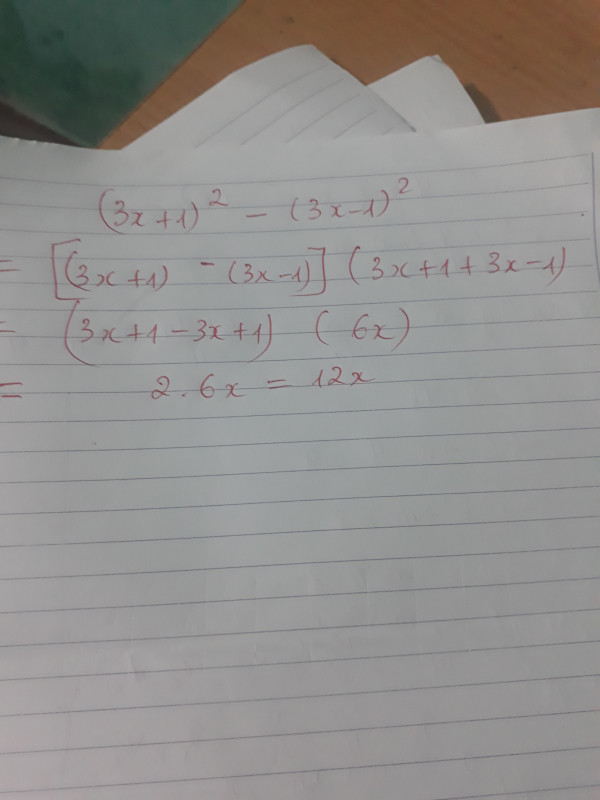 (3x+1)² - (3x-1)²
= [(3x+1) - (3x-1)] (3x+1+3x-1)
= (3x+1-3x+1) (6x)
= 2.6x = 12x